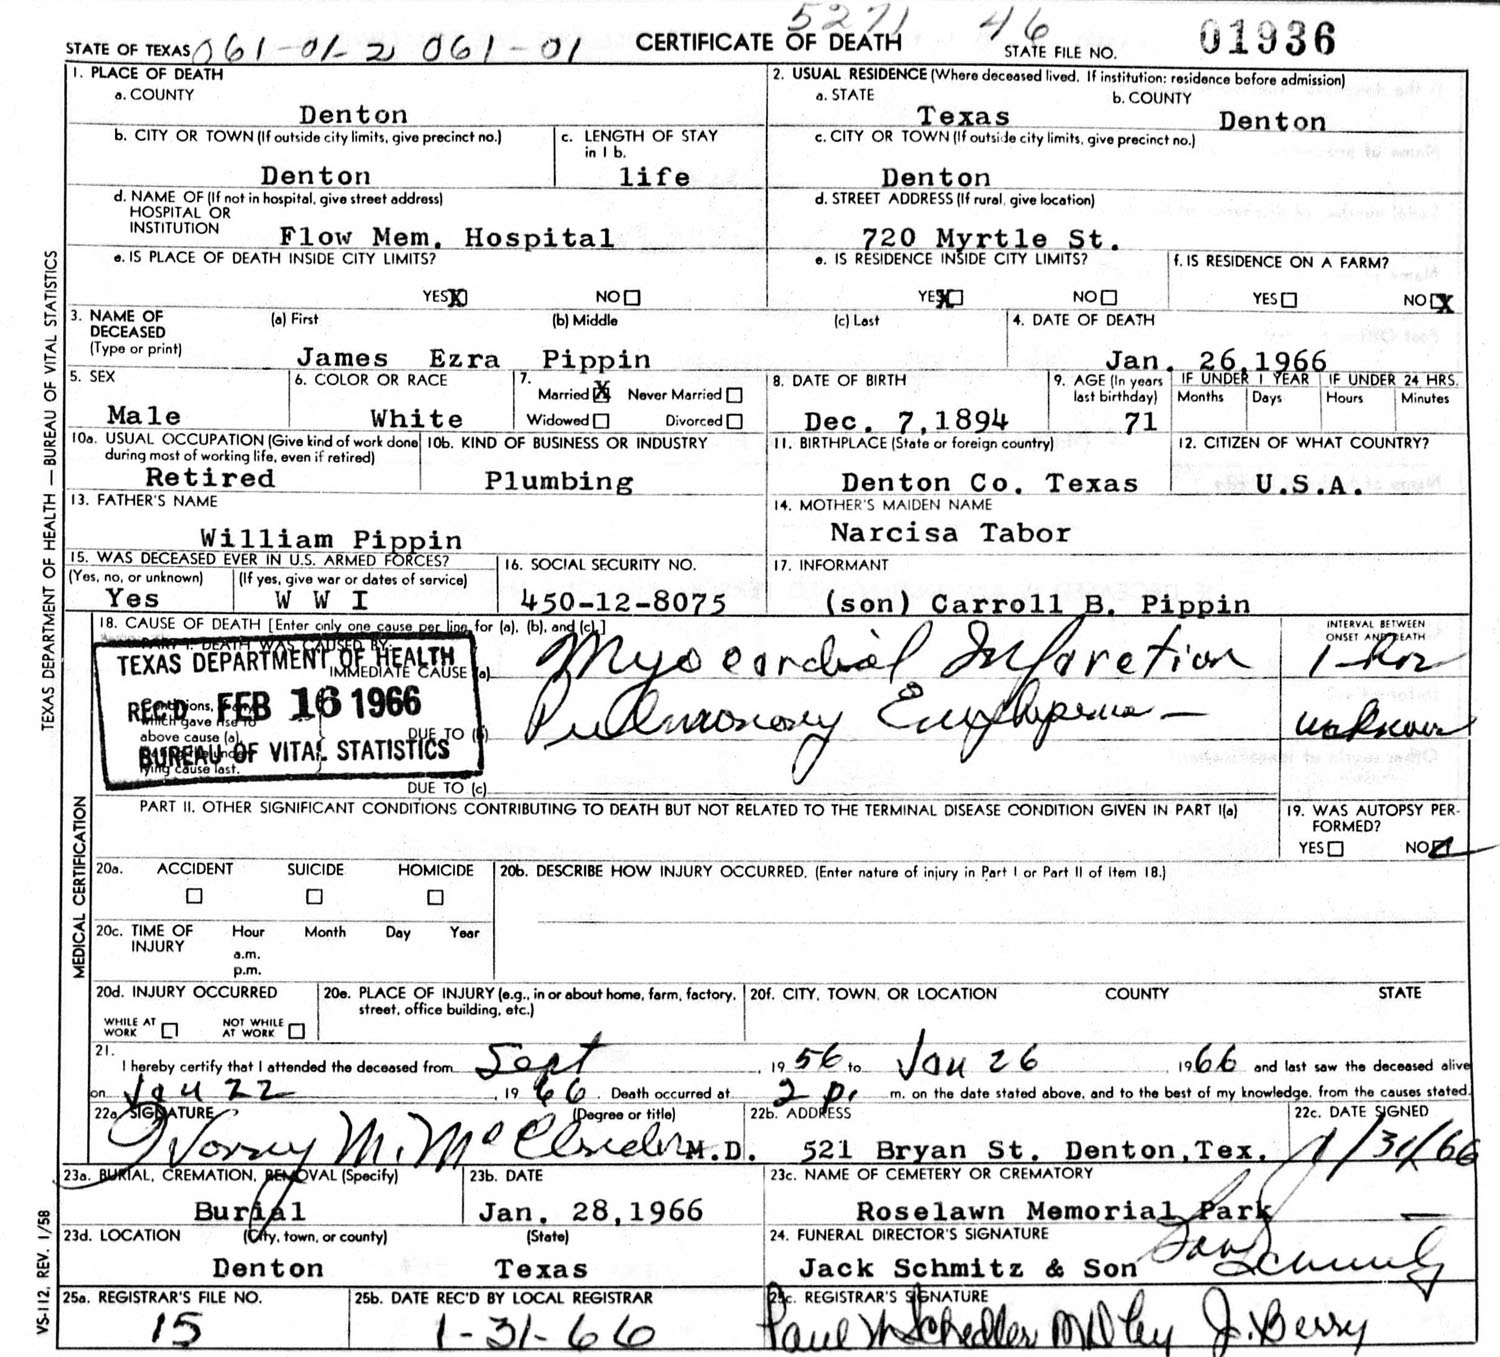 5271 46
STATE OF TEXAS 061-01-2 061-01 CERTIFICATE OF DEATH STATE FILE NO. 01936
1. PLACE OF DEATH
a. COUNTY
Denton
2. USUAL RESIDENCE (Where deceased lived. If institution: residence before admission)
a. STATE b. COUNTY
Texas Denton
b. CITY OR TOWN (If outside city limits, give precinct no.)
Denton
c. LENGTH OF STAY
in 1 b.
life
c. CITY OR TOWN (If outside city limits, give precinct no.)
Denton
d. NAME OF (If not in hospital, give street address)
HOSPITAL OR
INSTITUTION
Flow Mem. Hospital
d. STREET ADDRESS (If rural, give location)
720 Myrtle St.
e. IS PLACE OF DEATH INSIDE CITY LIMITS?
YES X NO
e. IS RESIDENCE INSIDE CITY LIMITS?
YES X NO
f. IS RESIDENCE ON A FARM?
YES NO X
3. NAME OF
DECEASED
(Type or print)
(a) First (b) Middle (c) Last
James Ezra Pippin
4. DATE OF DEATH
Jan. 26,1966
5. SEX
Male
6. COLOR OR RACE
White
7.
Married X Never Married
Widowed Divorced
8. DATE OF BIRTH
Dec. 7,1894
9. AGE (In years
last birthday)
71
IF UNDER 1 YEAR
Months Days
IF UNDER 24 HRS.
Hours Minutes
10a. USUAL OCCUPATION (Give kind of work done
during most of working life, even if retired)
Retired
10b. KIND OF BUSINESS OR INDUSTRY
Plumbing
11. BIRTHPLACE (State or foreign country)
Denton Co. Texas
12. CITIZEN OF WHAT COUNTRY?
U.S.A.
13. FATHER'S NAME
William Pippin
14. MOTHER'S MAIDEN NAME
Narcisa Tabor
15. WAS DECEASED EVER IN U.S. ARMED FORCES?
(Yes, no, or unknown) (If yes, give war or dates of service)
Yes W W I
16. SOCIAL SECURITY NO.
450-12-8075
17. INFORMANT
(son) Carroll B. Pippin
18. CAUSE OF DEATH [Enter only one cause per line for (a), (b), and (c).]
PART I. DEATH WAS CAUSED BY:
IMMEDIATE CAUSE (a) Myocardial Infarction
INTERVAL BETWEEN
ONSET AND DEATH
TEXAS DEPARTMENT OF HEALTH
REC'D FEB 16 1966
BUREAU OF VITAL STATISTICS
Conditions, if any,
which gave rise to
above cause (a),
lying cause last.
DUE TO (b) Pulmonary
unknown
DUE TO (c)
PART II. OTHER SIGNIFICANT CONDITIONS CONTRIBUTING TO DEATH BUT NOT RELATED TO THE TERMINAL DISEASE CONDITION GIVEN IN PART I(a)
19. WAS AUTOPSY PER-
FORMED?
YES NO
20a. ACCIDENT SUICIDE HOMICIDE
20b. DESCRIBE HOW INJURY OCCURRED. (Enter nature of injury in Part I or Part II of Item 18.)
20c. TIME OF
INJURY
Hour Month Day Year
a.m.
p.m.
20d. INJURY OCCURRED
WHILE AT
WORK
NOT WHILE
AT WORK
20e. PLACE OF INJURY (e.g., in or about home, farm, factory,
street, office building, etc.)
20f. CITY, TOWN, OR LOCATION COUNTY STATE
21.
I hereby certify that I attended the deceased from Sept, 1956 to Jan 26, 1966 and last saw the deceased alive
on Jan 22, 1966. Death occurred at 2 p. m. on the date stated above, and to the best of my knowledge, from the causes stated.
22a. SIGNATURE (Degree or title)
M.D.
22b. ADDRESS
521 Bryan St. Denton,Tex.
22c. DATE SIGNED
1/31/66
23a. BURIAL, CREMATION, REMOVAL (Specify)
Burial
23b. DATE
Jan. 28,1966
23c. NAME OF CEMETERY OR CREMATORY
Roselawn Memorial Park
23d. LOCATION (City, town, or county) (State)
Denton Texas
24. FUNERAL DIRECTOR'S SIGNATURE
Jack Schmitz & Son
25a. REGISTRAR'S FILE NO.
15
25b. DATE REC'D BY LOCAL REGISTRAR
1-31-66
25c. REGISTRAR'S SIGNATURE
J. Berry
TEXAS DEPARTMENT OF HEALTH — BUREAU OF VITAL STATISTICS
MEDICAL CERTIFICATION
VS-112, REV. 1/58